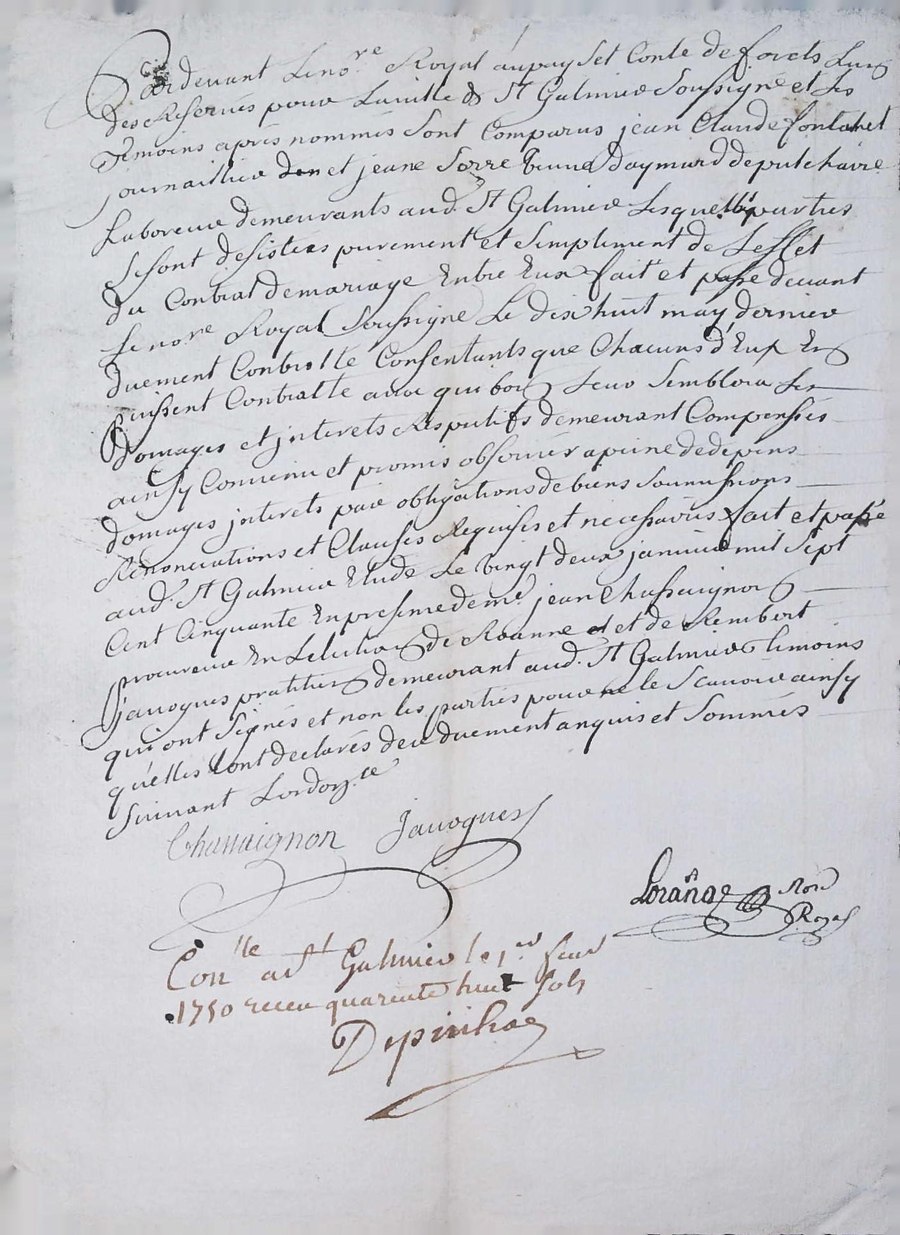 Pardevant Le no.re Royal au pays et Conté de forets L'un
des Reservés pour La ville de St Galmier Soussigné et les
temoins après nommés Sont Comparus jean Claude fontanet
journaillier d'un et jeane
Laboreur demeurants aud. St Galmier Lesquelles parties
Se sont desistées purement et Simplement de Leffet
du Contrat de mariage Entre Eux fait et passé devant
Le no.re Royal Soussigné Le dix huit may dernier
duement Controllé Consentants que Chacuns d'Eux En
puissent Contratter avec qui bon Leur Semblera Les
Domages et jnterets Respectifs demeurant Compensés
ainsy Convenu et promis observer a peine de depens
domages jnterets par obligations de biens Soumissions
Renonciations et Clauses Requises et necessaires fait et passé
aud. St Galmier Etude Le vingt deux janvier mil Sept
Cent Cinquante En presence de me. jean Chassaignon
procureur En Lelection de Roanne et de Rembert
javogues pratitien demeurant aud. St Galmier temoins
qui ont Signés et non les parties pour ne le Scavoir ainsy
quelles ont declarés de ce duement anquis et Sommés
Suivant Lordon.ce
Chassaignon Javogues
Not.
Royal
Con.lle a St Galmier le 1.er fevr
1750 receu quarente huit sols